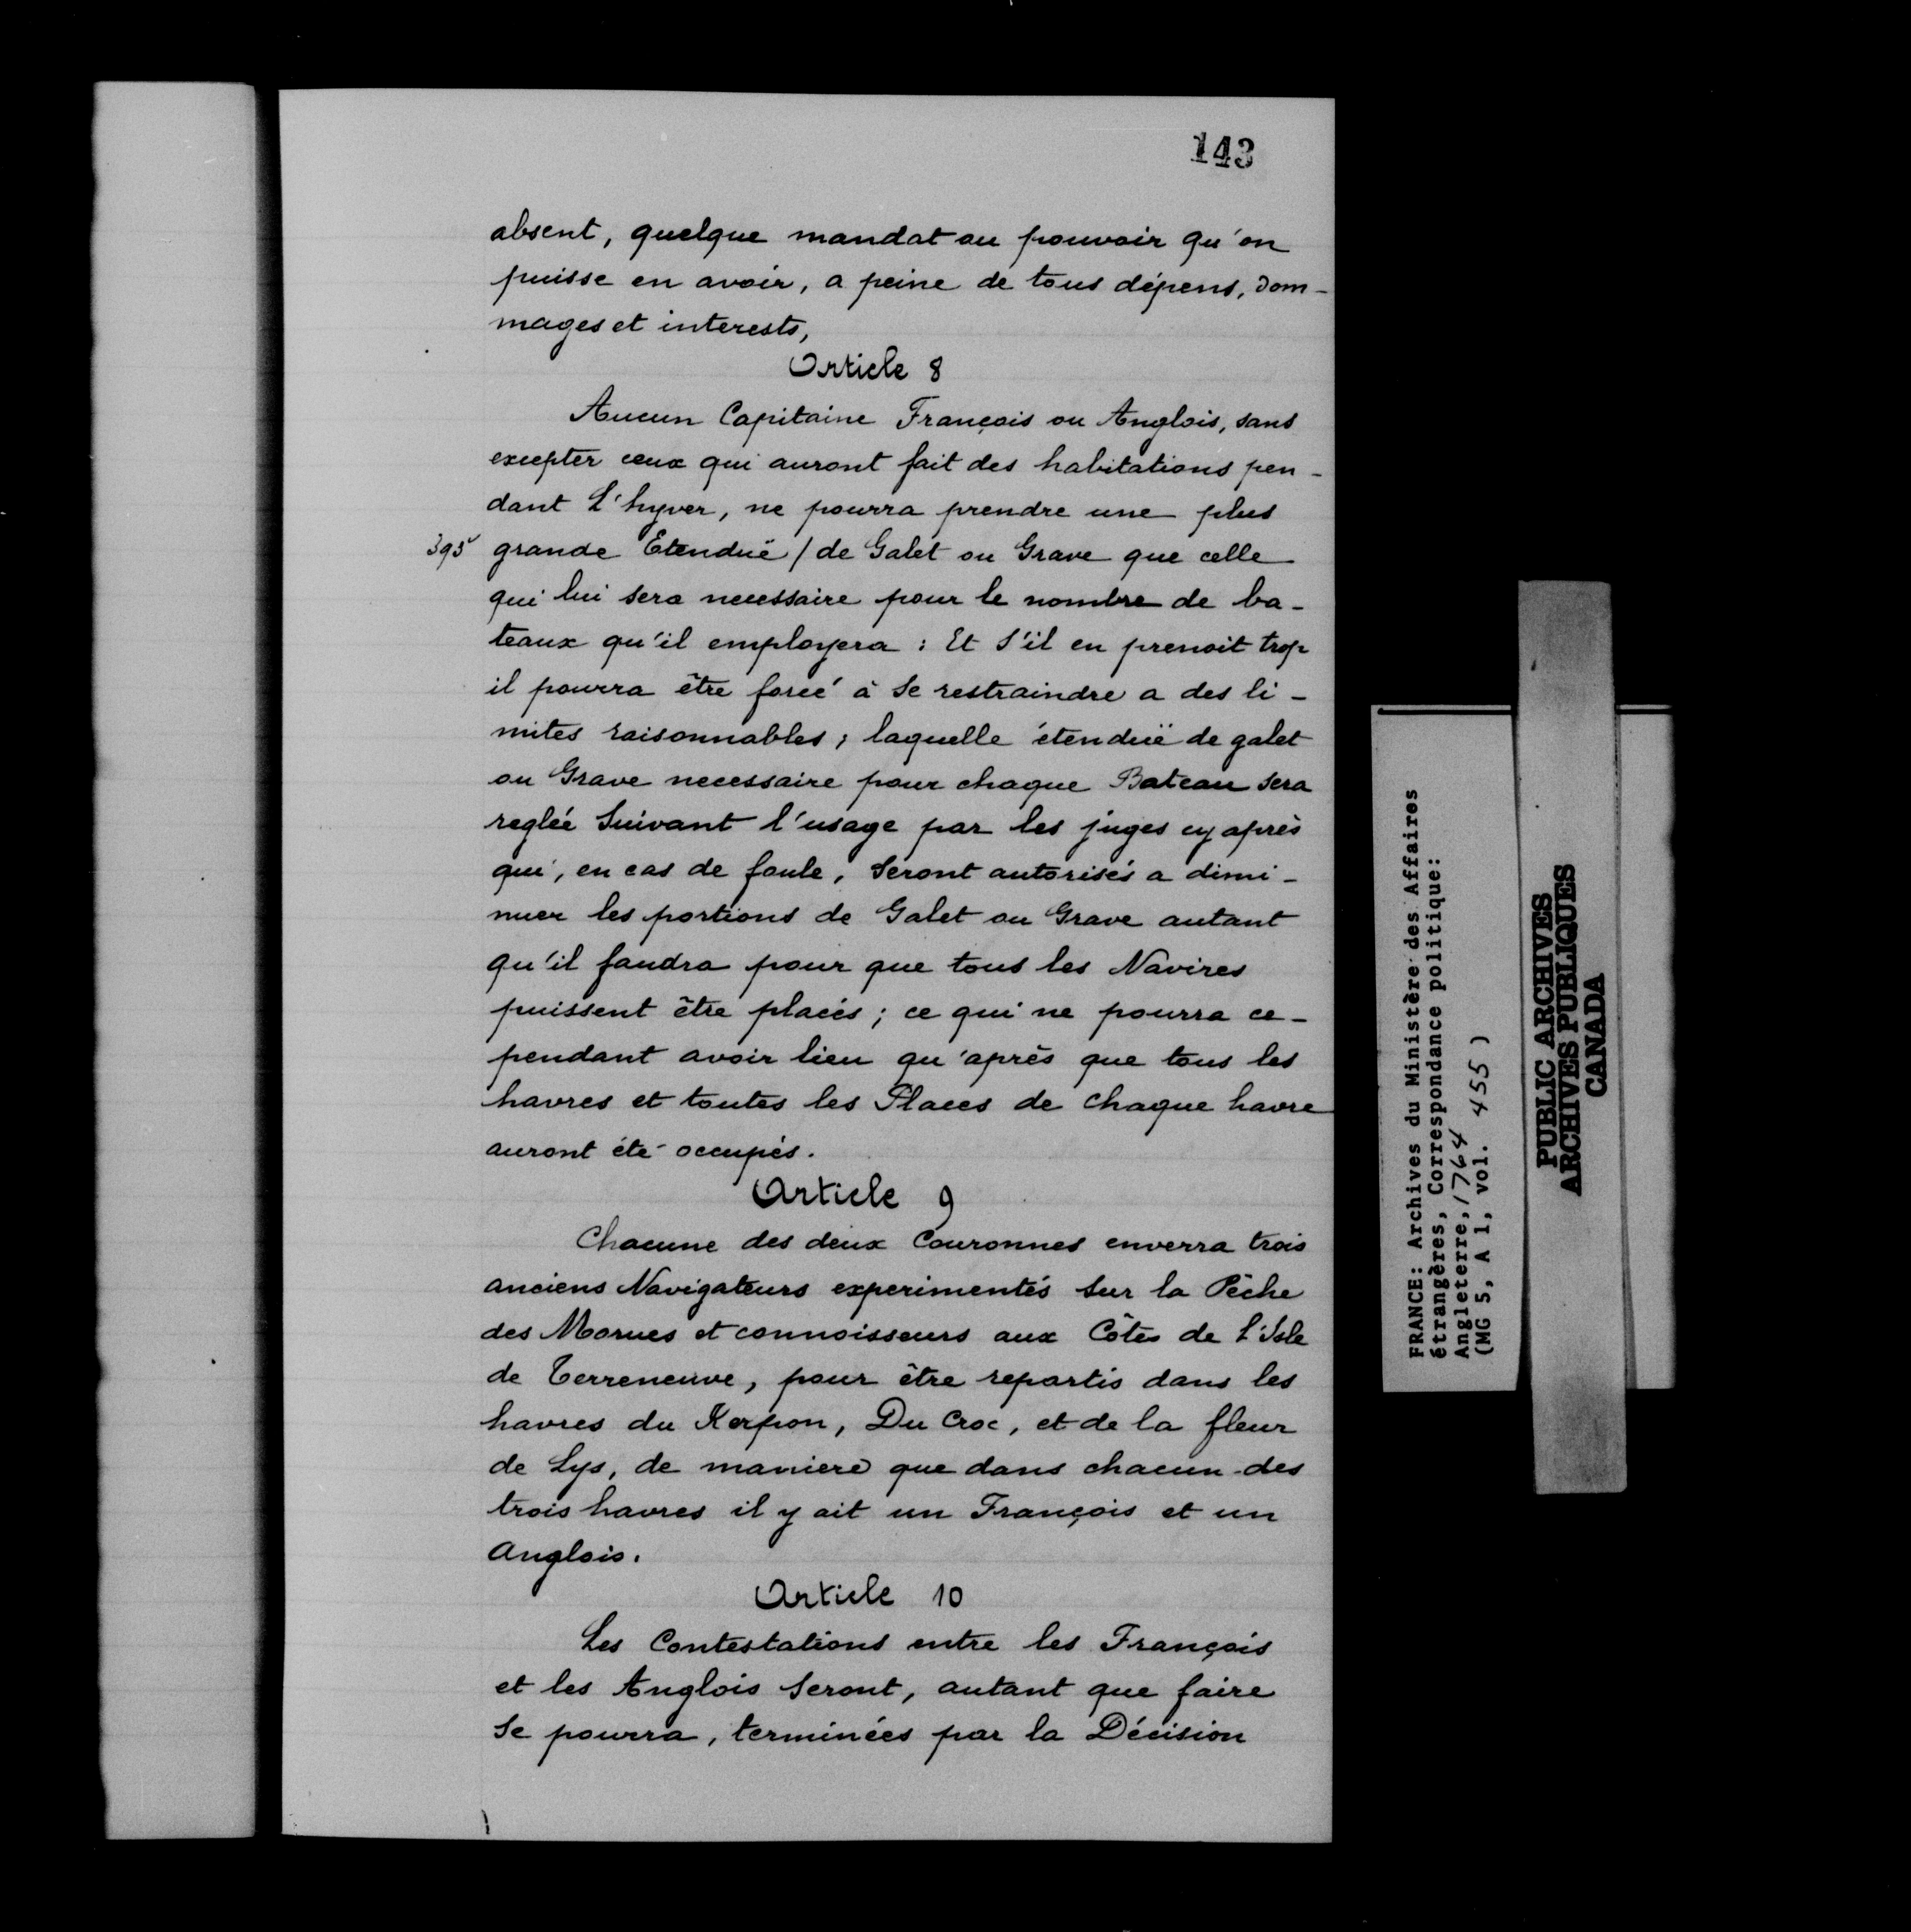 143
absent, quelque mandat ou pouvoir qu'on
puisse en avoir, a peine de tous dépens, dom-
mages et interests,
Article 8
Aucun Capitaine François ou Anglois, sans
excepter ceux qui auront fait des habitations pen-
dant L'hyver, ne pourra prendre une plus
395 grande Etenduë / de Galet ou Grave que celle
qui lui sera necessaire pour le nombre de ba-
teaux qu'il employera : Et S'il en prenoit trop
il pourra être forcé à Se restraindre a des li-
mites raisonnables ; laquelle étenduë de galet
ou Grave necessaire pour chaque Bateau Sera
reglée Suivant l'usage par les juges cy après
qui, en cas de foule, Seront autorisés a dimi-
nuer les portions de Galet ou Grave autant
qu'il faudra pour que tous les Navires
puissent être placés ; ce qui ne pourra ce-
pendant avoir lieu qu'après que tous les
havres et toutes les Places de chaque havre
auront été occupés.
Article 9
Chacune des deux Couronnes enverra trois
anciens Navigateurs experimentés Sur la Pêche
des Morues et connoisseurs aux Côtes de L'Isle
de Terreneuve, pour être repartis dans les
havres du Kerpon, Du Croc, et de la fleur
de Lys, de maniere que dans chacun des
trois havres il y ait un François et un
Anglois.
Article 10
Les Contestations entre les François
et les Anglois Seront, autant que faire
Se pourra, terminées par la Décision
FRANCE: Archives du Ministère des Affaires
étrangères, Correspondance politique:
Angleterre, 1764
(MG 5, A 1, vol. 455 )
PUBLIC ARCHIVES
ARCHIVES PUBLIQUES
CANADA